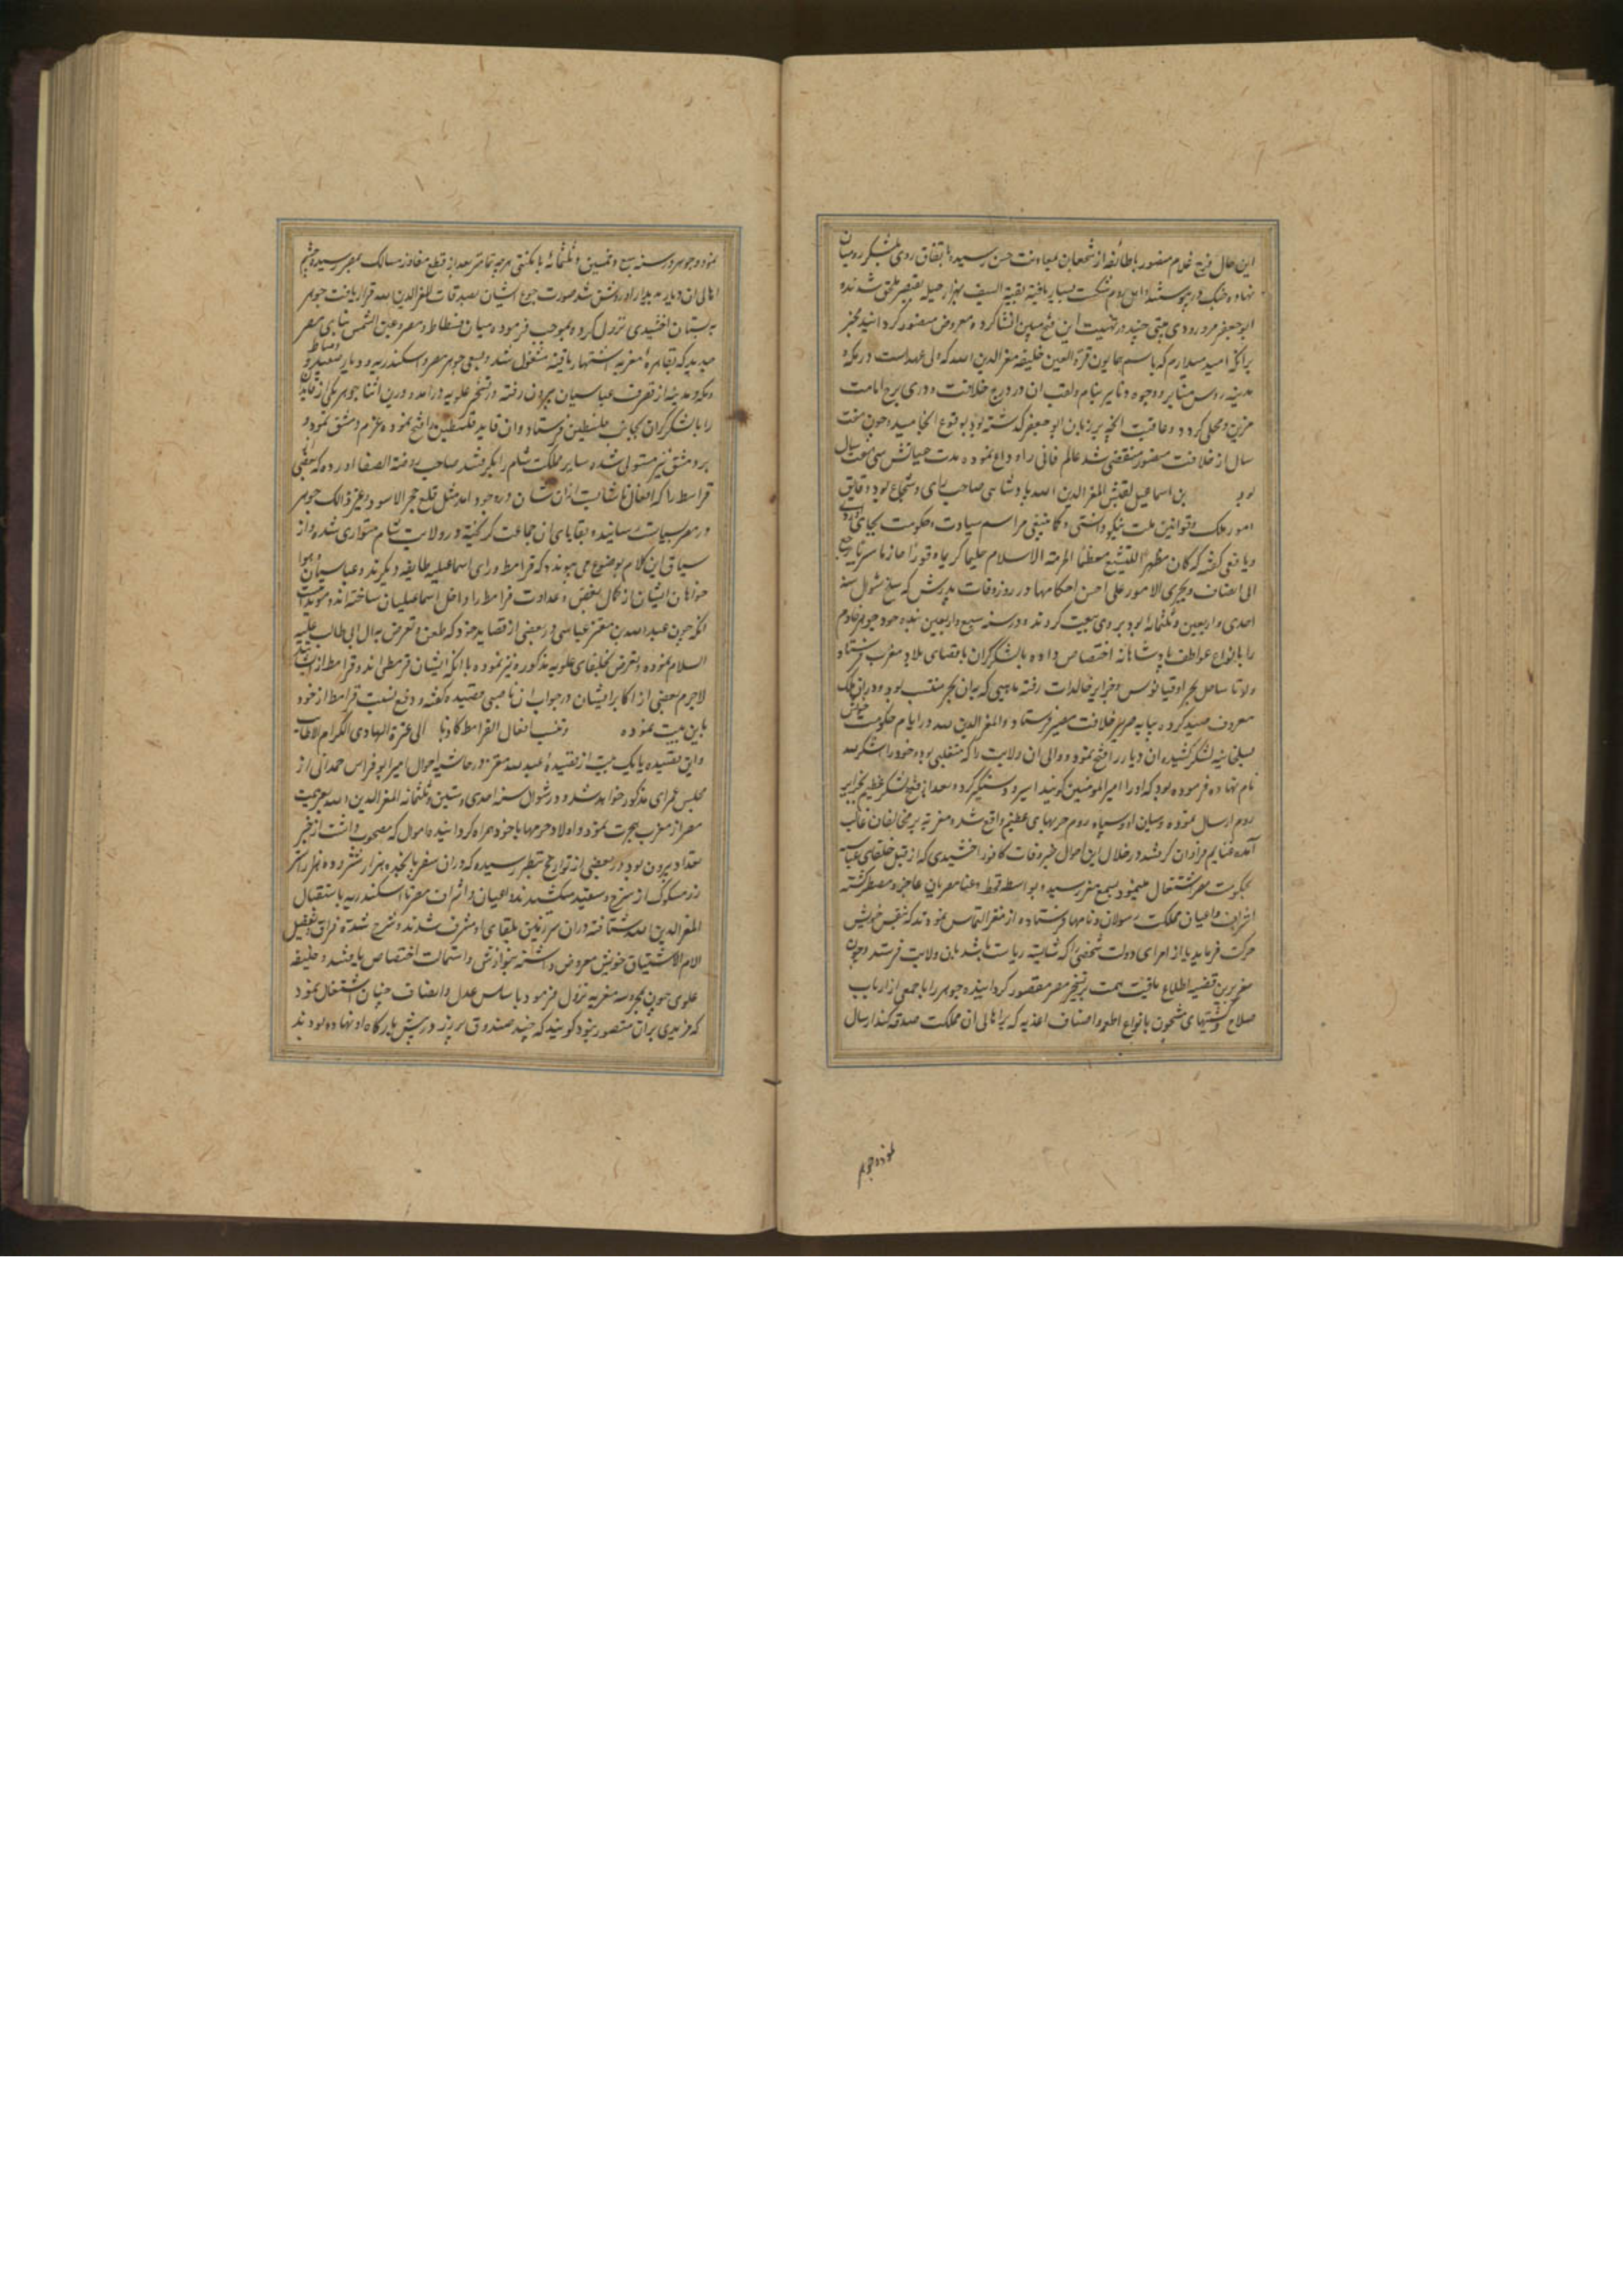 این حال فرح غلام منصور باطائفه از شجعان بمعاونت حسن رسیده باتفاق روی بلشکر رومیان
نهاده جنک در پیوستند و اهل روم شکست بسیار یافته بقیة السیف بهزار حیله بقیصر ملحق شدند و
ابو جعفر مرورودی بیتی چند در تهنیت این فتح مبین انشا کرده معروض منصور کردانید مخبر
برانکه امید میدارم که باسم همایون قرة العین خلیفه معز الدین الله که ولی عهد است در مکه و
مدینه روس منابر و وجوه دنانیر بنام و لقب ان در درج خلافت و دری برج امامت
مزین و محلی کردد و عاقبت انچه بر زبان ابو جعفر کذشته بود بوقوع انجامید و چون هفت
سال از خلافت منصور منقضی شد عالم فانی را وداع نموده مدت حیاتش سی هفت سال
بود بن اسماعیل لقبش المعز الدین الله پادشاهی صاحب رای و شجاع بود دقایق
امور ملک و قوانین ملت نیکو دانستی و کما ینبغی مراسم سیادت و حکومت بجای آوردی
و یافعی کفته که کان مظهرا للتشیع معظما لحرمة الاسلام حلیما کریما وقورا حازما سریا یرجع
الی انصاف ویجری الامور علی احسن احکامها در روز وفات پدرش که سلخ شوال سنه
احدی و اربعین و ثلثمائه بود بر وی بیعت کردند و در سنه سبع و اربعین بنده خود جوهر خادم
را بانواع عواطف پادشاهانه اختصاص داده با لشکر کران باقصای بلاد مغرب فرستاد
و او تا ساحل بحر اوقیانوس و جزایر خالدات رفته ماهیی که بدان بحر منتسب بود و دران ملک
معروف صید کرده بپایه سریر خلافت مصیر فرستاد و المعز الدین الله در ایام حکومت خویش
بسلجاسه لشکر کشیده ان دیار را فتح نمود و والی ان ولایت را که متغلبی بود و خود را الشاکر لله
نام نهاده فرموده بود که او را امیر المومنین کویند اسیر و دستکیر کرد و بعد از فتح لشکر عظیم بجزایر
روم ارسال نموده و میان او و سپاه روم حربهای عظیم واقع شد و مغربیه بر مخالفان غالب
آمده غنایم فراوان کرفتند در خلال این احوال خبر وفات کافور اخشیدی که از قبل خلفای عباسیه
بحکومت مصر اشتغال مینمود بسمع معز رسید و بواسطه قحط و غلا مصریان عاجز و مضطر کشته
اشراف و اعیان مملکت رسولان و نامها فرستاده از معز التماس نمودند که بنفس خویش
حرکت فرماید یا از امرای دولت شخصی را که شایسته ریاست باشد بان ولایت فرستد و چون
معز برین قضیه اطلاع یافت همت بر تسخیر مصر مقصور کردانیده جوهر را با جمعی از ارباب
صلاح و کشتیهای مشحون بانواع اطعمه و اصناف اغذیه که بر اهالی ان مملکت صدقه کند ارسال
نمود و جوهر
نمود و جوهر در سنه سبع و خمسین و ثلثمائه با مکنتی هرچه تمامتر بعد از قطع مفاوز و مسالک بمصر رسیده چشم
اهالی ان دیار به دیدار او روشن شد صورت جوع ایشان بصدقات المعز الدین الله قرار یافت جوهر
به بستان اخشیدی نزول کرده بموجب فرموده میان فسطاط و مصر و عین الشمس بنای مصر
جدید که بقاهره معزیه اشتهار یافته مشغول شد و بسعی جوهر مصر و اسکندریه و دیار صعید و دمیاط و
و مکه و مدینه از تصرف عباسیان بیرون رفته در تسخیر علویه درآمد و درین اثنا جوهر یکی از قایدان
را با لشکر کران بجانب فلسطین فرستاد و ان قاید فلسطین را فتح نموده عزم دمشق نمود و
بر دمشق نیز مستولی شده سایر مملکت شام را بکرفتند صاحب روضة الصفا آورده که بعضی
قرامطه را که افعال ناشایست ازان شان در وجود آمده مثل قلع حجر الاسود و غیر ذالک جوهر
در مصر بسیاست رسانیده و بقایای ان جماعت کریخته در ولایت شام متواری شدند و از
سیاق این کلام بوضوح می پیوندد که قرامطه ورای اسماعیلیه طایفه دیکرند و عباسیان و هوا
خواهان ایشان از کمال بغض و عداوت قرامطه را داخل اسماعیلیان ساخته اند و موید اینست
انکه چون عبد الله بن معتز عباسی در بعضی از قصاید خود که طعن و تعرض به ال ابی طالب علیه
السلام نموده و تعرض بخلیفای علویه مذکوره نیز نموده با انکه ایشان قرمطی اند و قرامطه از ایشان
لاجرم بعضی از اکابر ایشان در جواب ان ناصبی قصیده کفته و دفع نسبت قرامطه از خود
باین بیت نموده وتنسب افعال القرامط کاذبا الی عترة الهادی الکرام الاطایب
و این قصیده با یک بیت از قصیده عبید الله معتز در حاشیه احوال امیر ابو فراس حمدانی از
مجلس شعرای مذکور خواهد شد و در شوال سنه احدی و ستین و ثلثمائه المعز الدین الله بعزیمت
مصر از مغرب هجرت نمود و اولاد و حرمها با خود همراه کردانیده و اموال که مصحوب داشت از حیز
تعداد بیرون بود و در بعضی از تواریخ بنظر رسیده که دران سفر پانجده هزار شتر و ده هزار استر
زر مسکوک از سرخ و سفید میکشیدند و اعیان و اشراف مصر تا اسکندریه باستقبال
المعز الدین الله شتافته دران سرزمین بلقای او مشرف شدند و شرح شدة فراق بتفصیل
الام الاشتیاق خویش معروض داشته بنوازش و استمالت اختصاص یافتند و خلیفه
علوی چون بمحروسه معزیه نزول فرمود باساس عدل و انصاف چنان اشتغال نمود
که مزیدی بران متصور نبود کویند که چند صندوق پر زر در پیش بارکاه او نهاده بودند